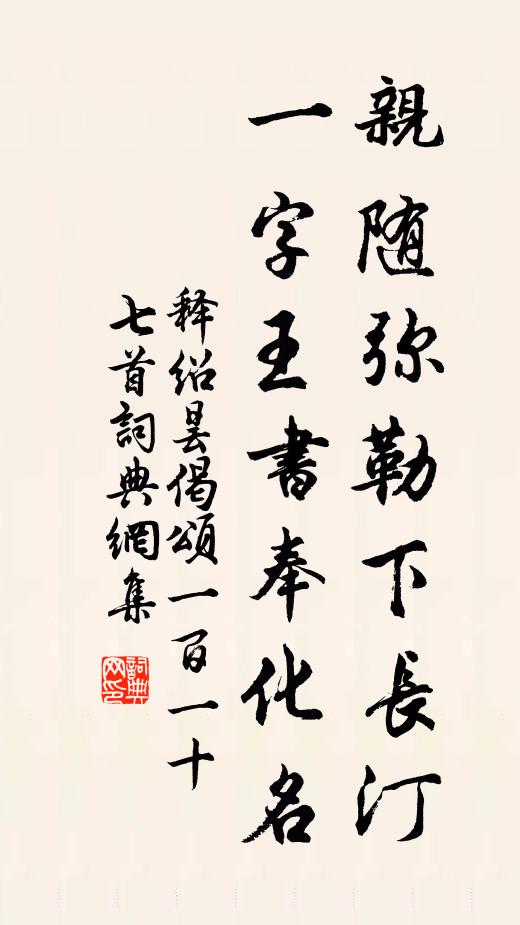 親随弥勒下長汀
一字王書奉化名
释绍昙偈頌一百一十
七首詞典網集
詞典网印